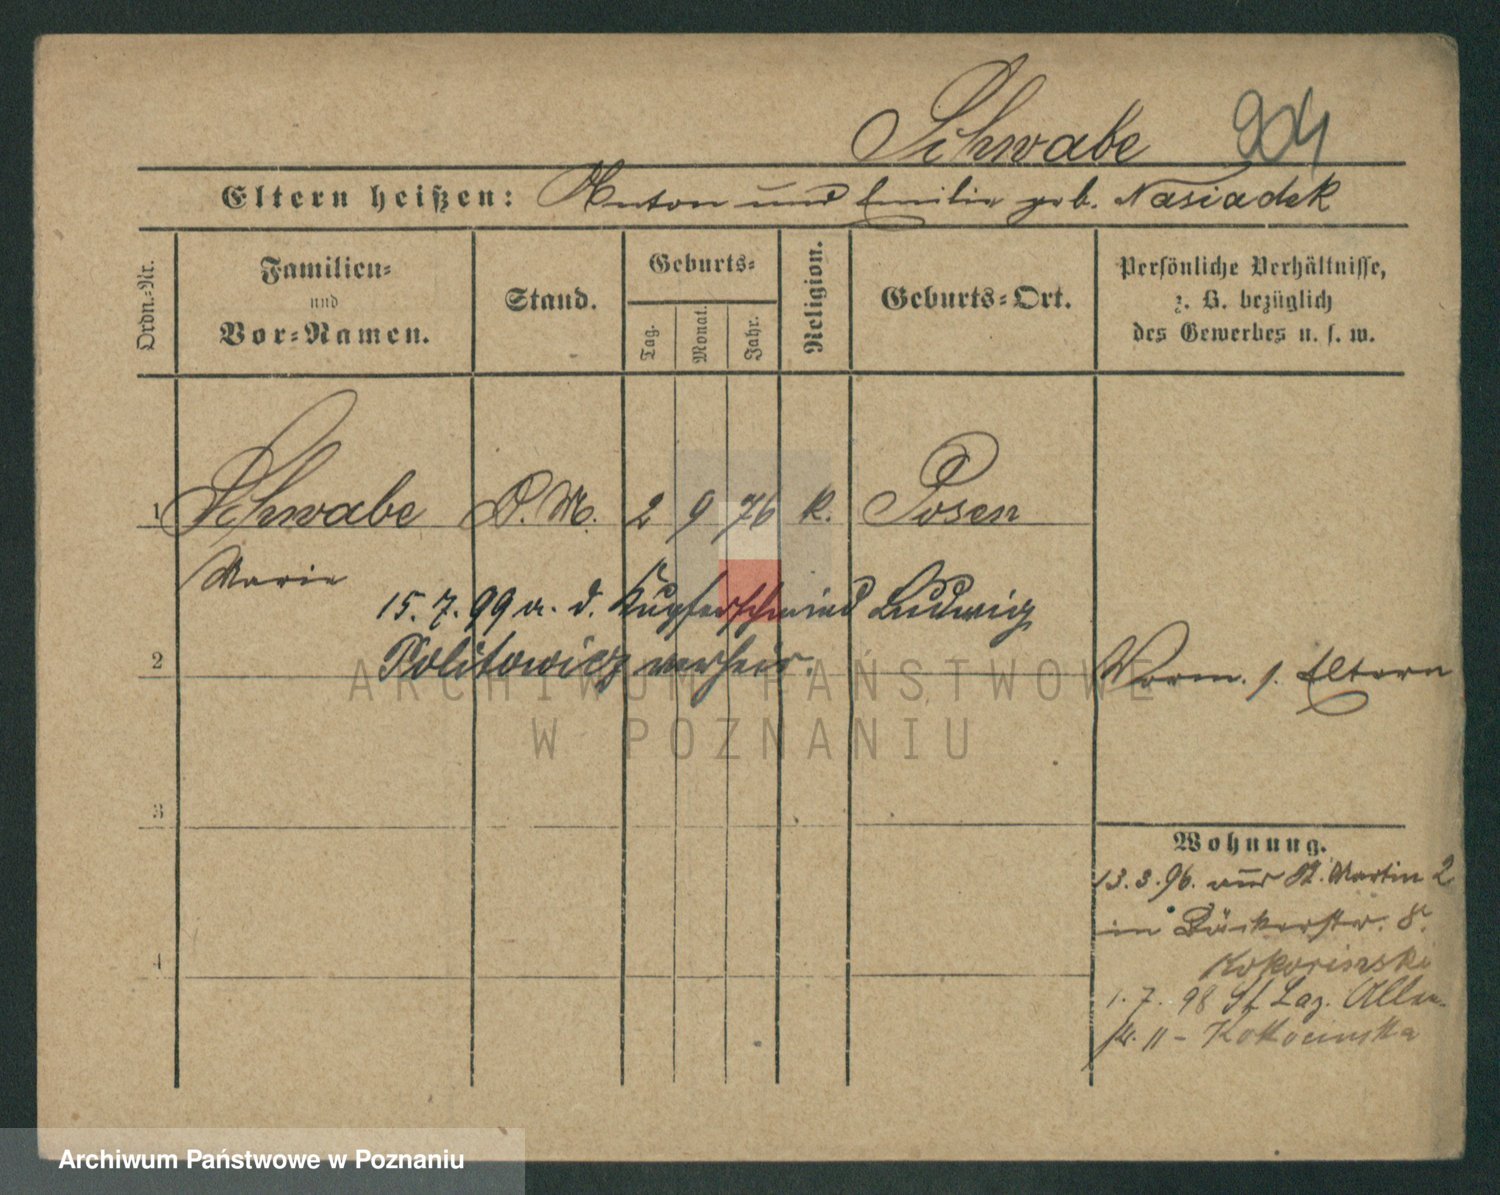 Schwabe 204
Eltern heißen: Anton und Emilie geb. Nasiadek
Ordn.-Nr.
Familien-
und
Vor-Namen.
Stand.
Geburts-
Tag.
Monat.
Jahr.
Religion.
Geburts-Ort.
Persönliche Verhältnisse,
z. B. bezüglich
des Gewerbes u. s. w.
1 Schwabe D. M. 2 9 76 k. Posen
Marie
15. 7. 99 a. d. Kupferschmied Ludwig
2 Politowicz verheir.
Vorm. s. Eltern
ARCHIWUM PAŃSTWOWE
W POZNANIU
3
Wohnung.
13. 3. 96. St. Martin 2
in Bäckerstr. 8.
4
1. 7. 98 St Laz.
11 -
Archiwum Państwowe w Poznaniu